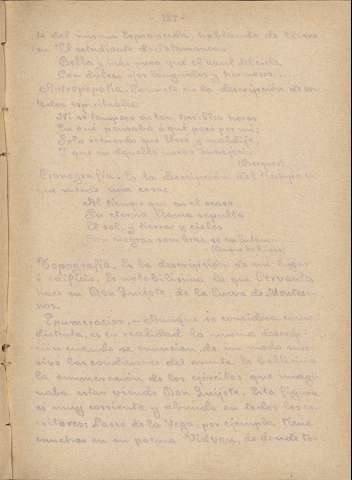 - 127 -
te del mismo Espronceda, hablando de Elvira
en "El estudiante de Salamanca"
Bella y más pura que el azul del cielo
Con dulces ojos lánguidos y hermosos...
Antropopatia. Consiste en la descripción de
espirituales:
Ni sé tampoco en tan terribles horas
En qué pensaba o qué pasó por mí;
Solo recuerdo que lloré y maldije,
Y que en aquella noche envejecí.
(Becquer)
Cronografía. Es la descripción del tiempo en
que sucede una cosa:
Al tiempo que en el ocaso
Su eterna llama sepulta
El sol, y tierras y cielos
Con negras sombras se enlutan.
Topografía. Es la descripción de un lugar
o edificio. Es notabilísima la que Cervantes
hace en Don Quijote, de la Cueva de Montesi-
nos.
Enumeración. - Aunque se considera como
distinta, es en realidad la misma descrip-
ción cuando se enuncian, de un modo suce-
sivo las condiciones del Es bellísima
la enumeración de los ejércitos que imagi-
naba estar viendo Don Quijote. Esta figura
es muy corriente y abunda en todos los es-
critores; Lasso de la Vega, por ejemplo, tiene
muchas en su poema de donde